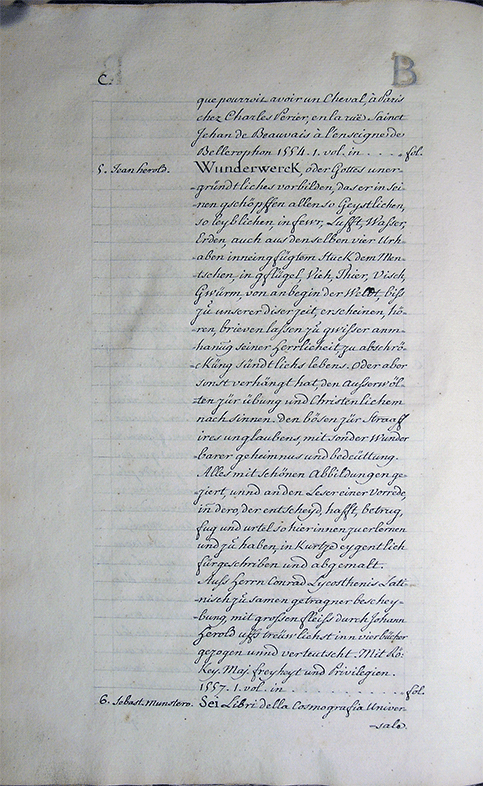 C.
B
que pourroit avoir un Cheval, à Paris
chez Charles Perier, en la ruë Sainct
Jehan de Beauvais à l'enseigne de
Bellerophon 1554. 1. vol. in . . . . fol.
5. Jean herold. Wunderwerck, oder Gottes uner-
gründtliches vorbilden, das er in sei-
nen gschöpffen allen so Geystlichen,
so leyblichen, in fewr, Lufft, Wasser,
Erden, auch aus den selben vier Urh-
aben inneingfügtem stuck dem Men-
tschen, in gflügel, Vich, Thier, Visch,
Gwürm, von anbegin der Weldt, biss
zu unserer diser zeit, erscheinen, hö-
ren, brieven lassen zü gwisser anm-
hanüg seiner herrlicheit, zu abschrö-
cküng sündtlichs lebens. Oder aber
sonst verhängt hat, den Ausserwöl-
ten zür übung und Christenlichem
nach sinnen. den bösen zür Straaff
ires unglaubens, mit sonder Wunder
barer geheimnus und bedeüttung.
Alles mit schönen Abbildungen ge-
ziert, unnd an den Leser einer vorrede,
in dero, der entscheyd, hafft, betrug,
fug und urtel so hierinnen zu erlernen
und zü haben, in Kurtze eygentlich
fürgeschriben und abgemalt.
Auss Herrn Conrad Lycosthenis Latt-
nisch zü samen getragner beschey-
bung mit grossen fleiss durch Johann
Herold uffs treüwlichst inn vier bücher
gezogen unnd verteutscht. Mit Rö-
Key. Maj. freyheyt und Privilegien.
1557. 1. vol. in . . . . . . . . . . . . fol.
6. Sebast. munstero. Sei Libri della Cosmografia Univer-
sale.